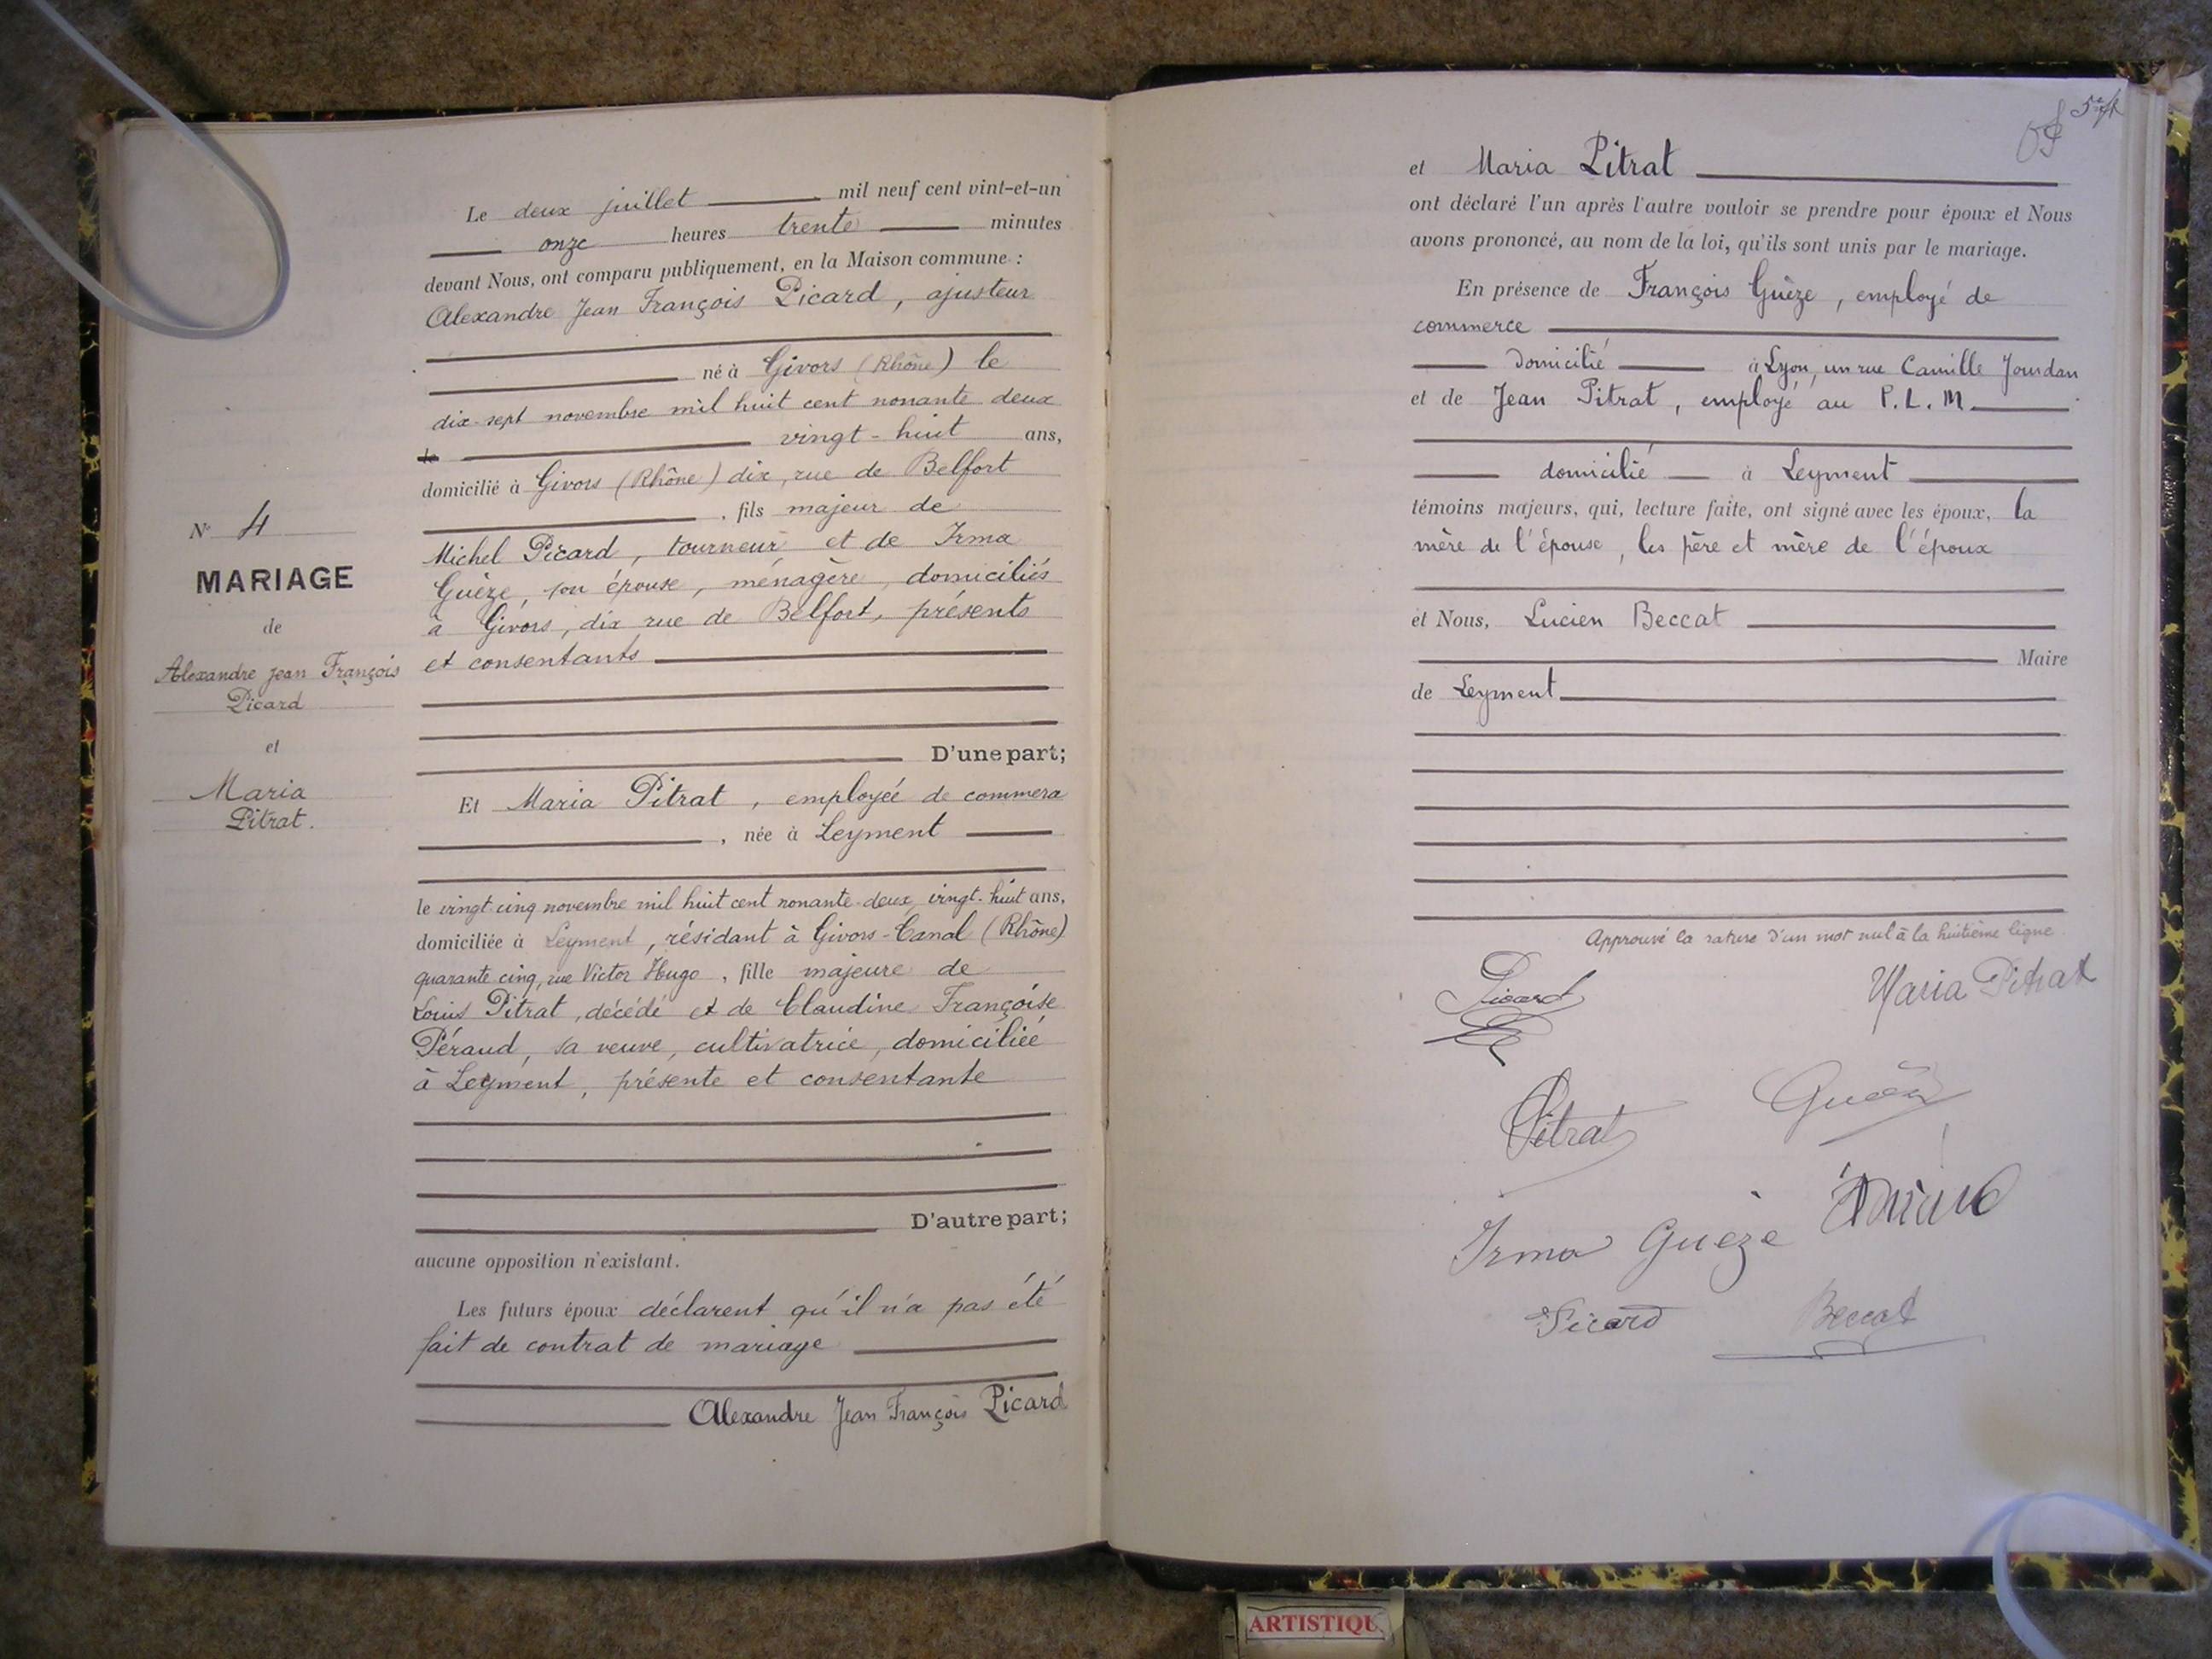 Le deux juillet mil neuf cent vint-et-un
onze heures trente minutes
devant Nous, ont comparu publiquement, en la Maison commune :
Alexandre Jean François Picard, ajusteur
né à Givors (Rhône) le
dix-sept novembre mil huit cent nonante deux
vingt-huit ans,
domicilié à Givors (Rhône) dix, rue de Belfort
, fils majeur de
Michel Picard, tourneur et de Irma
Guèze, son épouse, ménagère, domiciliés
à Givors, dix rue de Belfort, présents
et consentants
D'une part;
Et Maria Pitrat, employée de commerce
, née à Leyment
le vingt-cinq novembre mil huit cent nonante-deux, vingt-huit ans,
domiciliée à Leyment, résidant à Givors-Canal (Rhône)
quarante cinq, rue Victor Hugo, fille majeure de
Louis Pitrat, décédé et de Claudine Françoise
Péraud, sa veuve, cultivatrice, domiciliée
à Leyment, présente et consentante
D'autre part;
aucune opposition n'existant.
Les futurs époux déclarent qu'il n'a pas été
fait de contrat de mariage
Alexandre Jean François Picard
N° 4
MARIAGE
de
Alexandre Jean François
Picard
et
Maria
Pitrat.
et Maria Pitrat
ont déclaré l'un après l'autre vouloir se prendre pour époux et Nous
avons prononcé, au nom de la loi, qu'ils sont unis par le mariage.
En présence de François Guèze, employé de
commerce
domicilié à Lyon, un rue Camille Jourdan
et de Jean Pitrat, employé au P.L.M.
domicilié à Leyment
témoins majeurs, qui, lecture faite, ont signé avec les époux, la
mère de l'épouse, les père et mère de l'époux
et Nous, Lucien Beccat
Maire
de Leyment
Approuvé la rature d'un mot nul à la huitième ligne.
Picard Maria Pitrat
Pitrat
Irma Guèze
Picard Beccat
ARTISTIQU